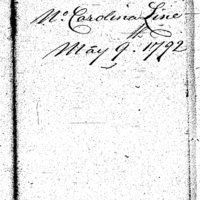 No Carolina Line
May 9th 1792